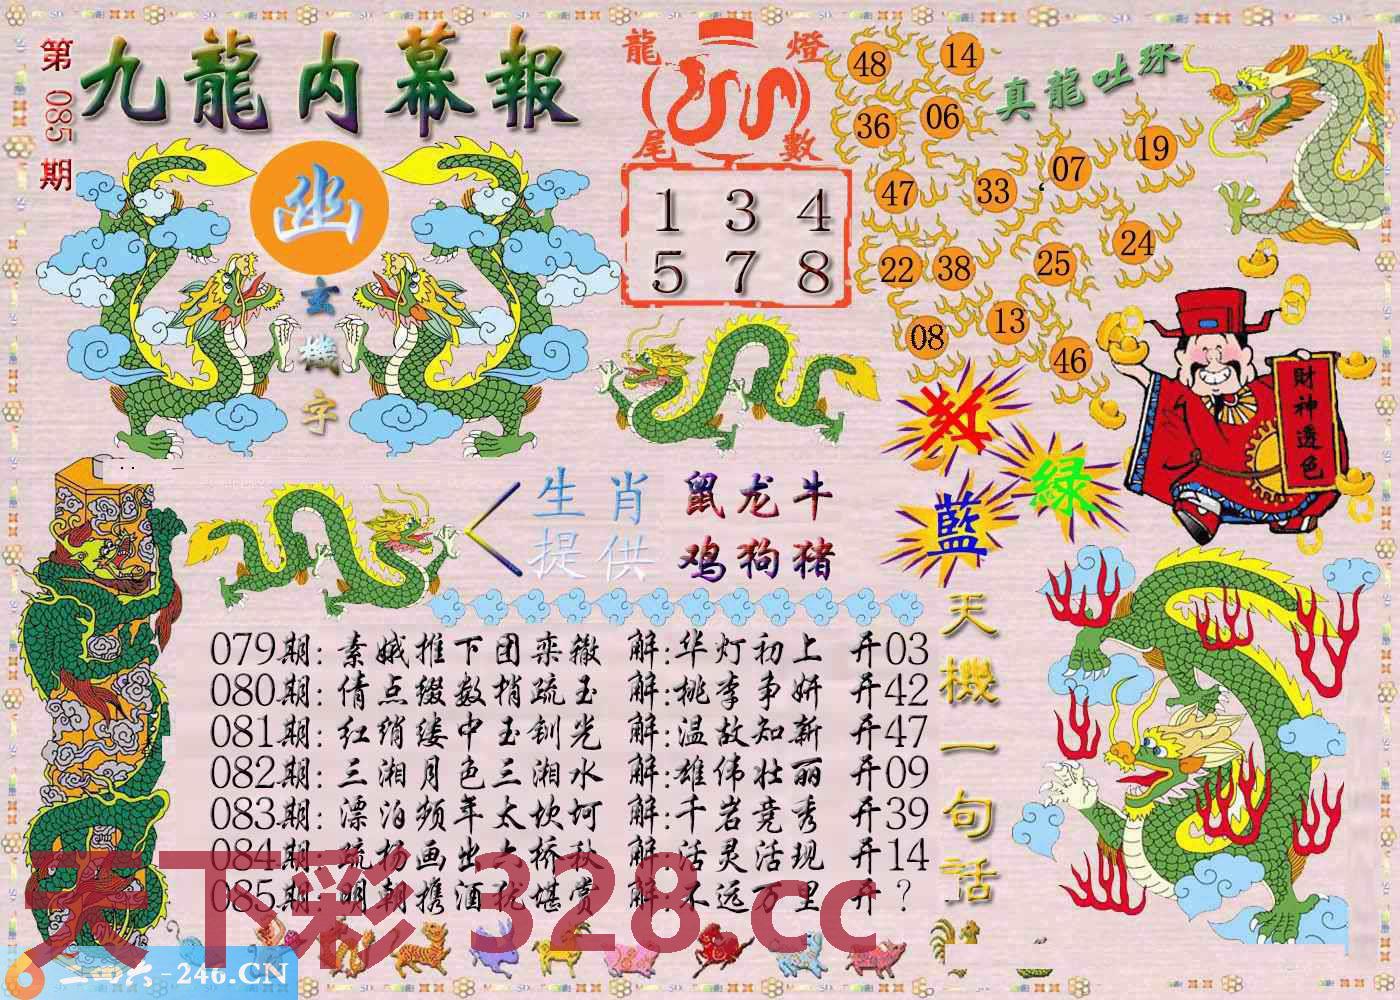 第085期
九龍内幕報
幽
玄機字
龍燈尾數
1 3 4
5 7 8
48 14
36 06
47 33 07 19
22 38 25 24
08 13 46
真龍吐珠
財神透色
紅
綠
藍
生肖 鼠龙牛
提供 鸡狗猪
079期: 素娥推下团栾辙 解:华灯初上 开03
080期: 倩点缀数梢疏玉 解:桃李争妍 开42
081期: 红绡缕中玉钏光 解:温故知新 开47
082期: 三湘月色三湘水 解:雄伟壮丽 开09
083期: 漂泊频年太坎坷 解:千岩竞秀 开39
084期: 疏杨画出六桥秋 解:活灵活现 开14
085期: 明朝携酒犹堪赏 解:不远万里 开？
天機一句話
天下彩 328.cc
二四六-246.CN